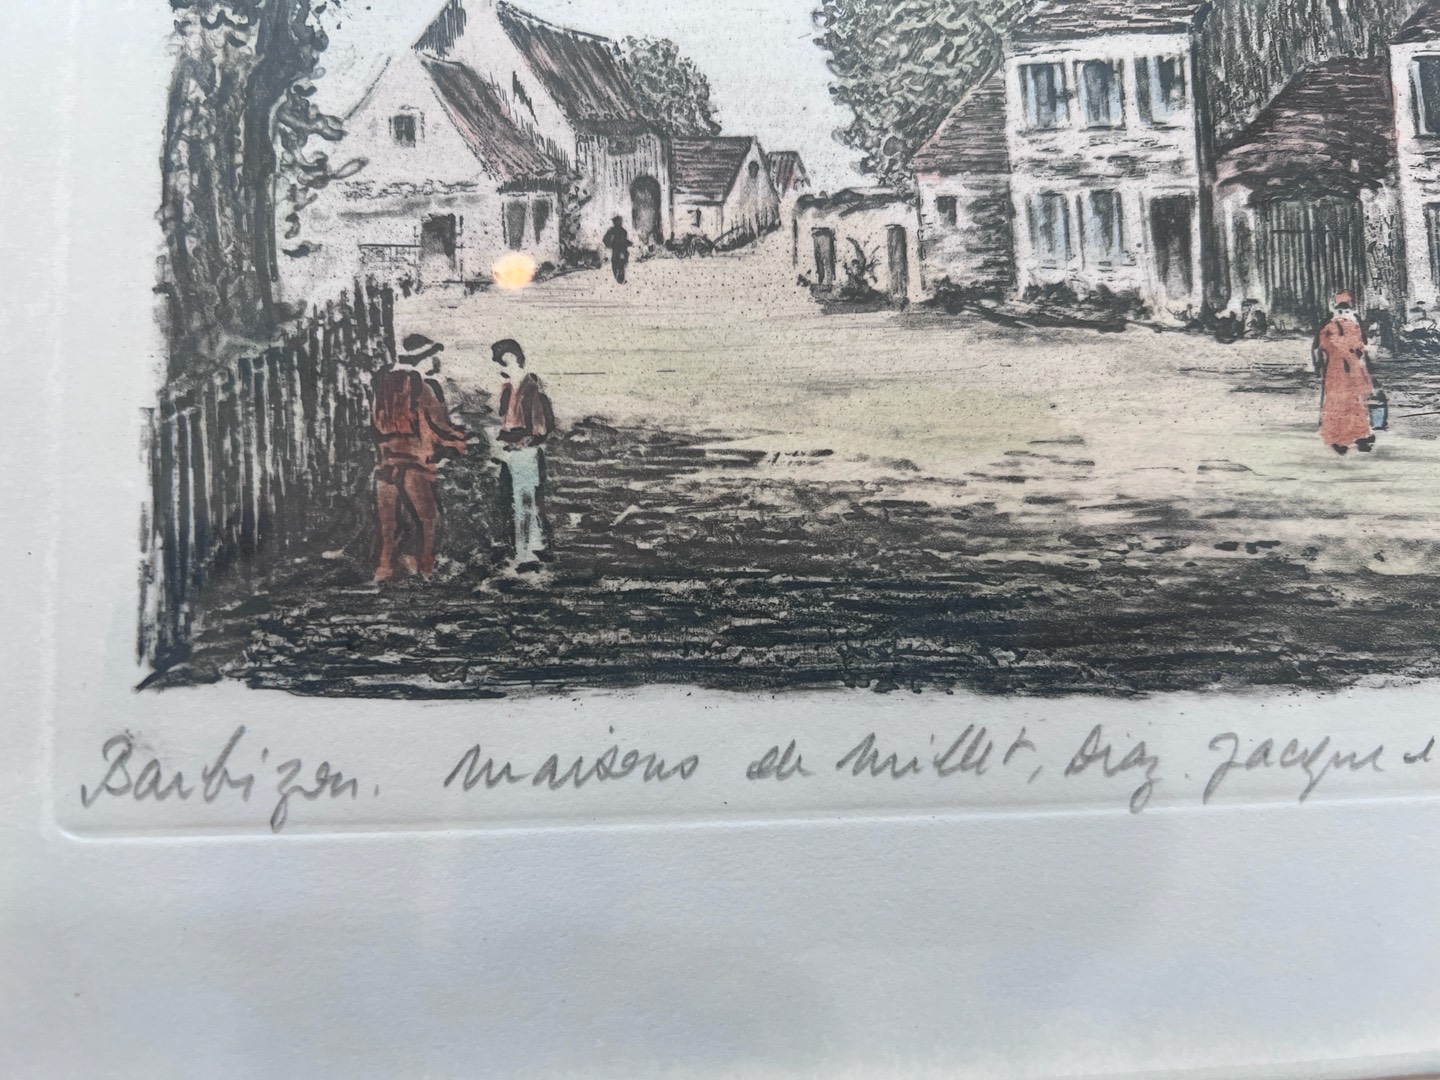 Barbizon. Maisons de Millet, Diaz. Jacque e